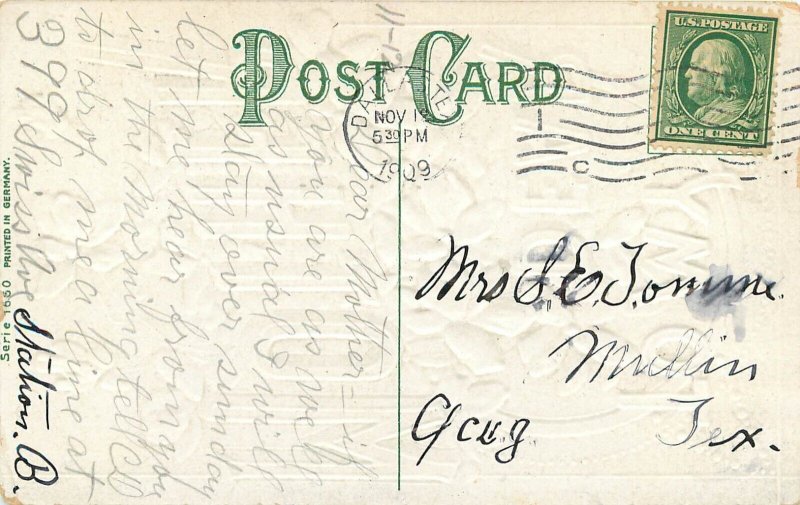 POST CARD
U.S. POSTAGE
ONE CENT
NOV 12
5 30 PM
1909
C
11-12
Dear Mother = if
you are as well
as usual I will
stay over sunday
let me hear from you
in the Morning tell
to drop me a line at
399 Swiss Ave Station. B.
Mrs S. E. Tomme.
Mullin
Tex.
Serie 1650 PRINTED IN GERMANY.